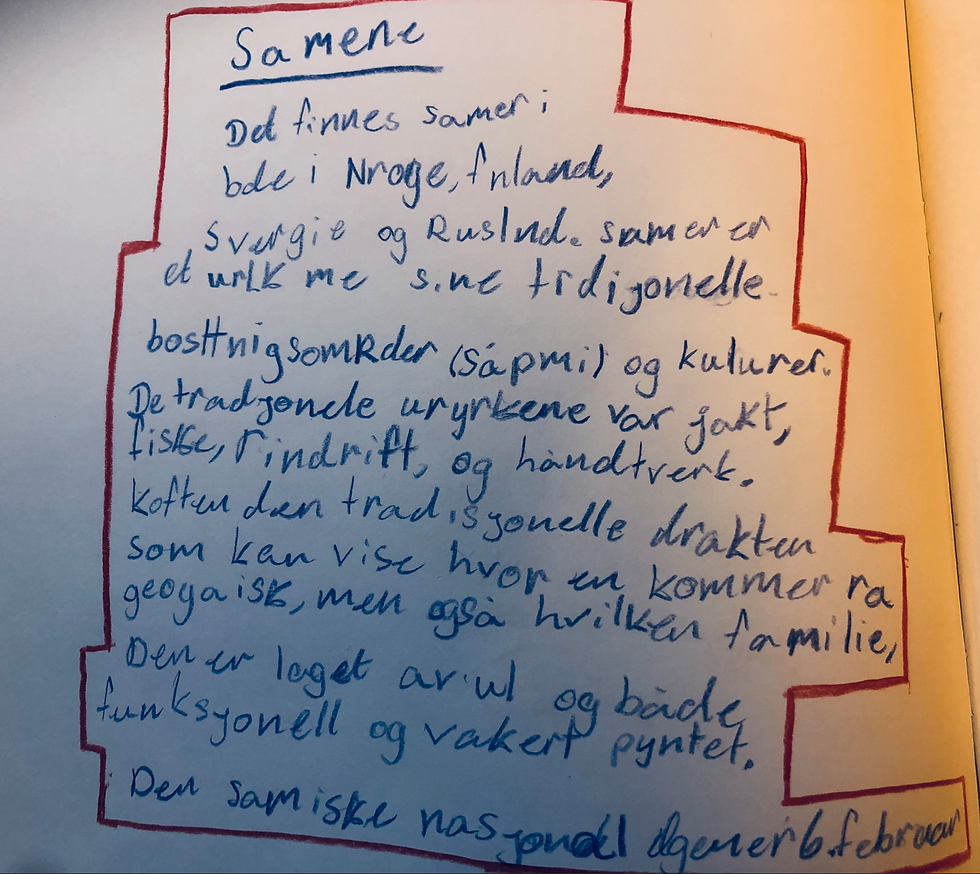 Samene
Det finnes samer i
bde i Nroge, fnland,
svergie og Ruslnd. samer er
et urlk me sine trdijonelle
bosttnigsomRder (sápmi) og kulurer.
De tradjonele uryrkene var jakt,
fiske, rindrift, og håndtverk.
koften den tradisjonelle drakten
som kan vise hvor en kommer ra
geogaisk, men også hvilken familie,
Den er laget av ul og både
funksjonell og vakert pyntet.
Den samiske nasjonal dgen er 6. februar